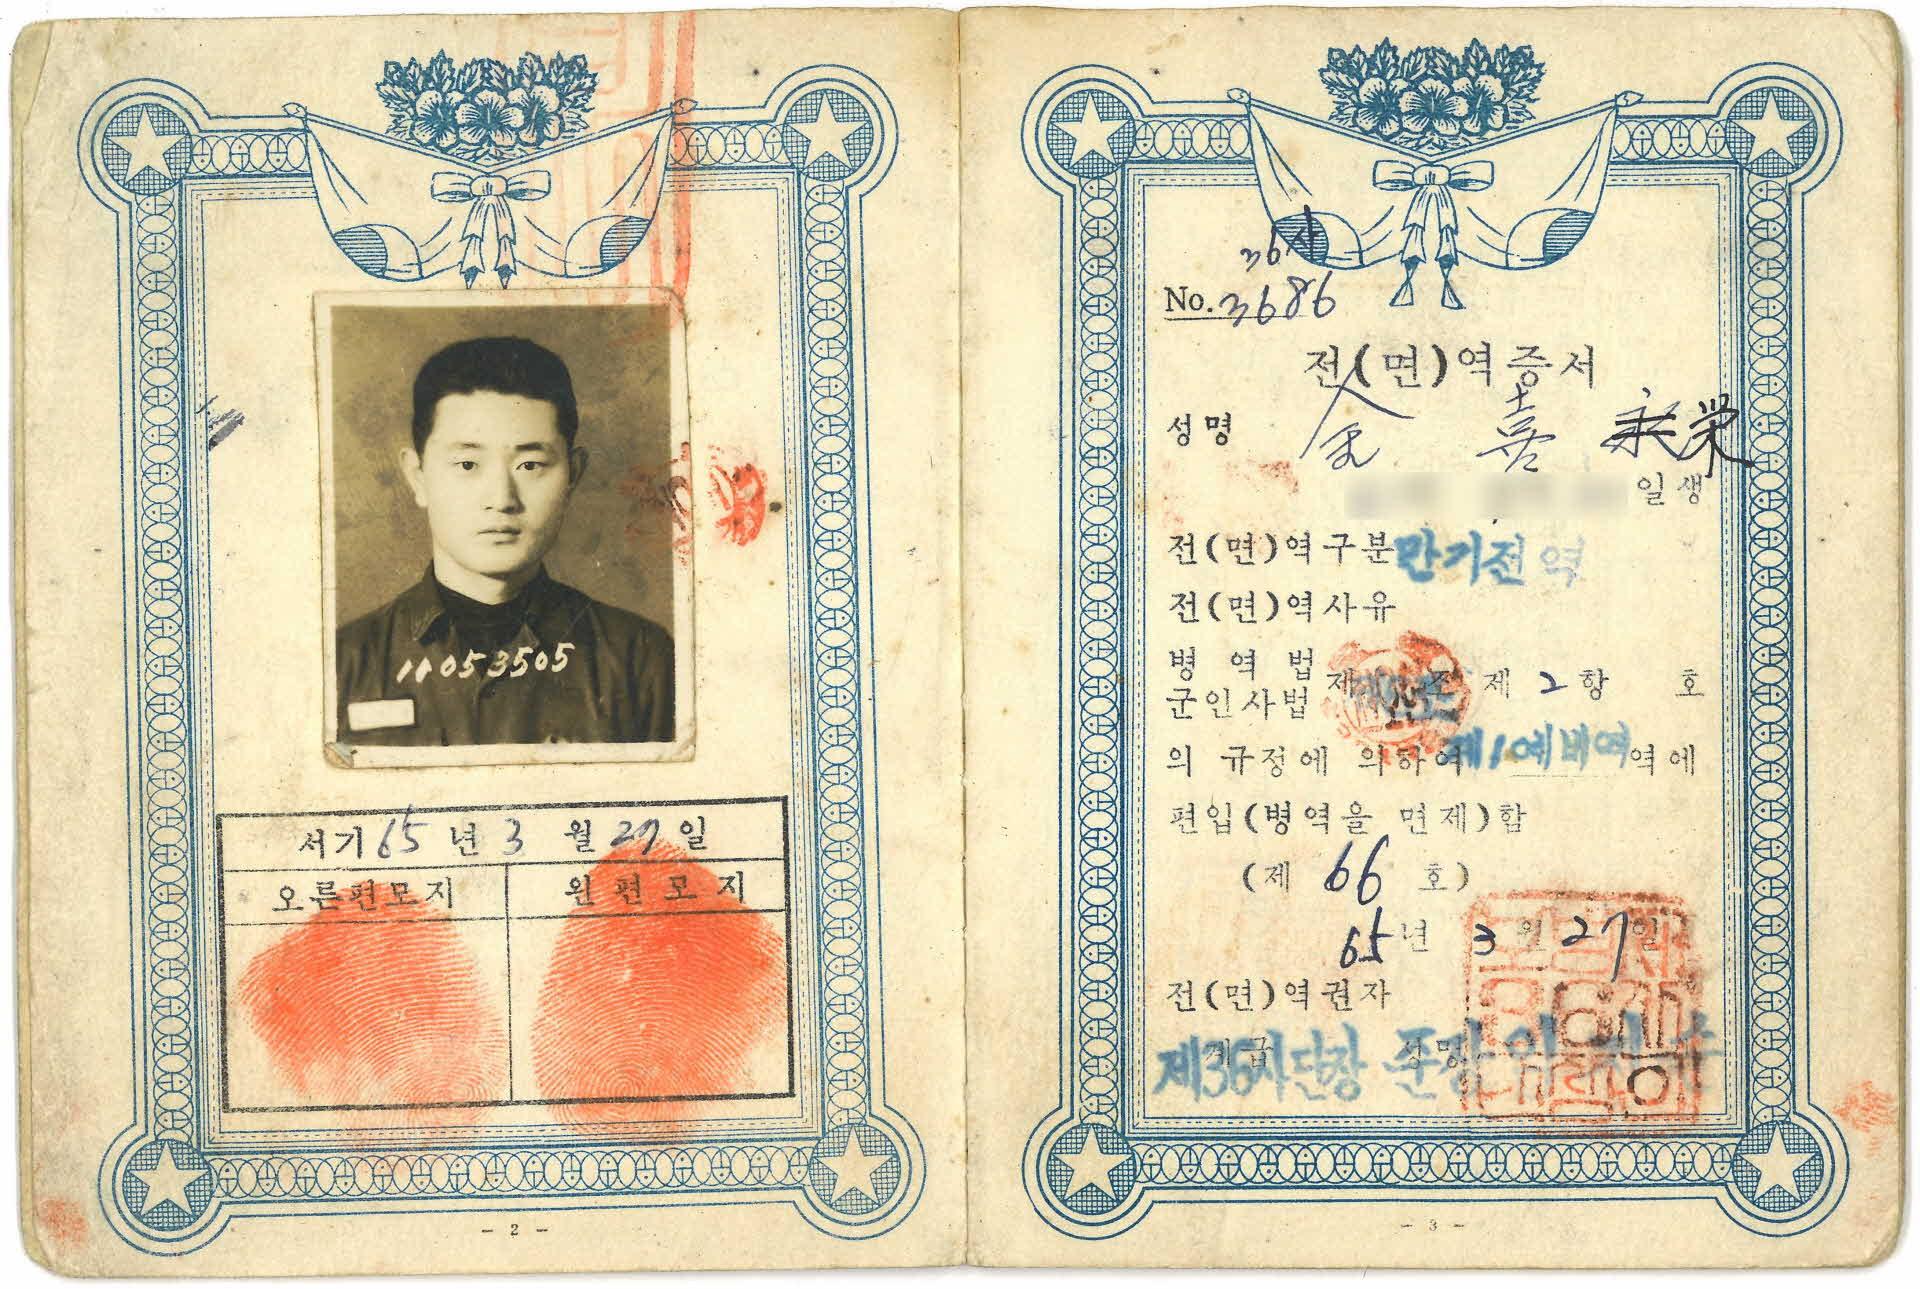 11053505
서기 65 년 3 월 27 일
오른편모지 왼편모지
- 2 -
36사
No. 3686
전(면)역증서
성명 金 喜 榮
일생
전(면)역구분 만기전역
전(면)역사유
병역법
군인사법 제 조 제 2 항 호
의 규정에 의하여 제1예비역 역에
편입(병역을 면제)함
(제 66 호)
65 년 3 월 27 일
전(면)역권자
계급 성명
제36사단장 준장
- 3 -